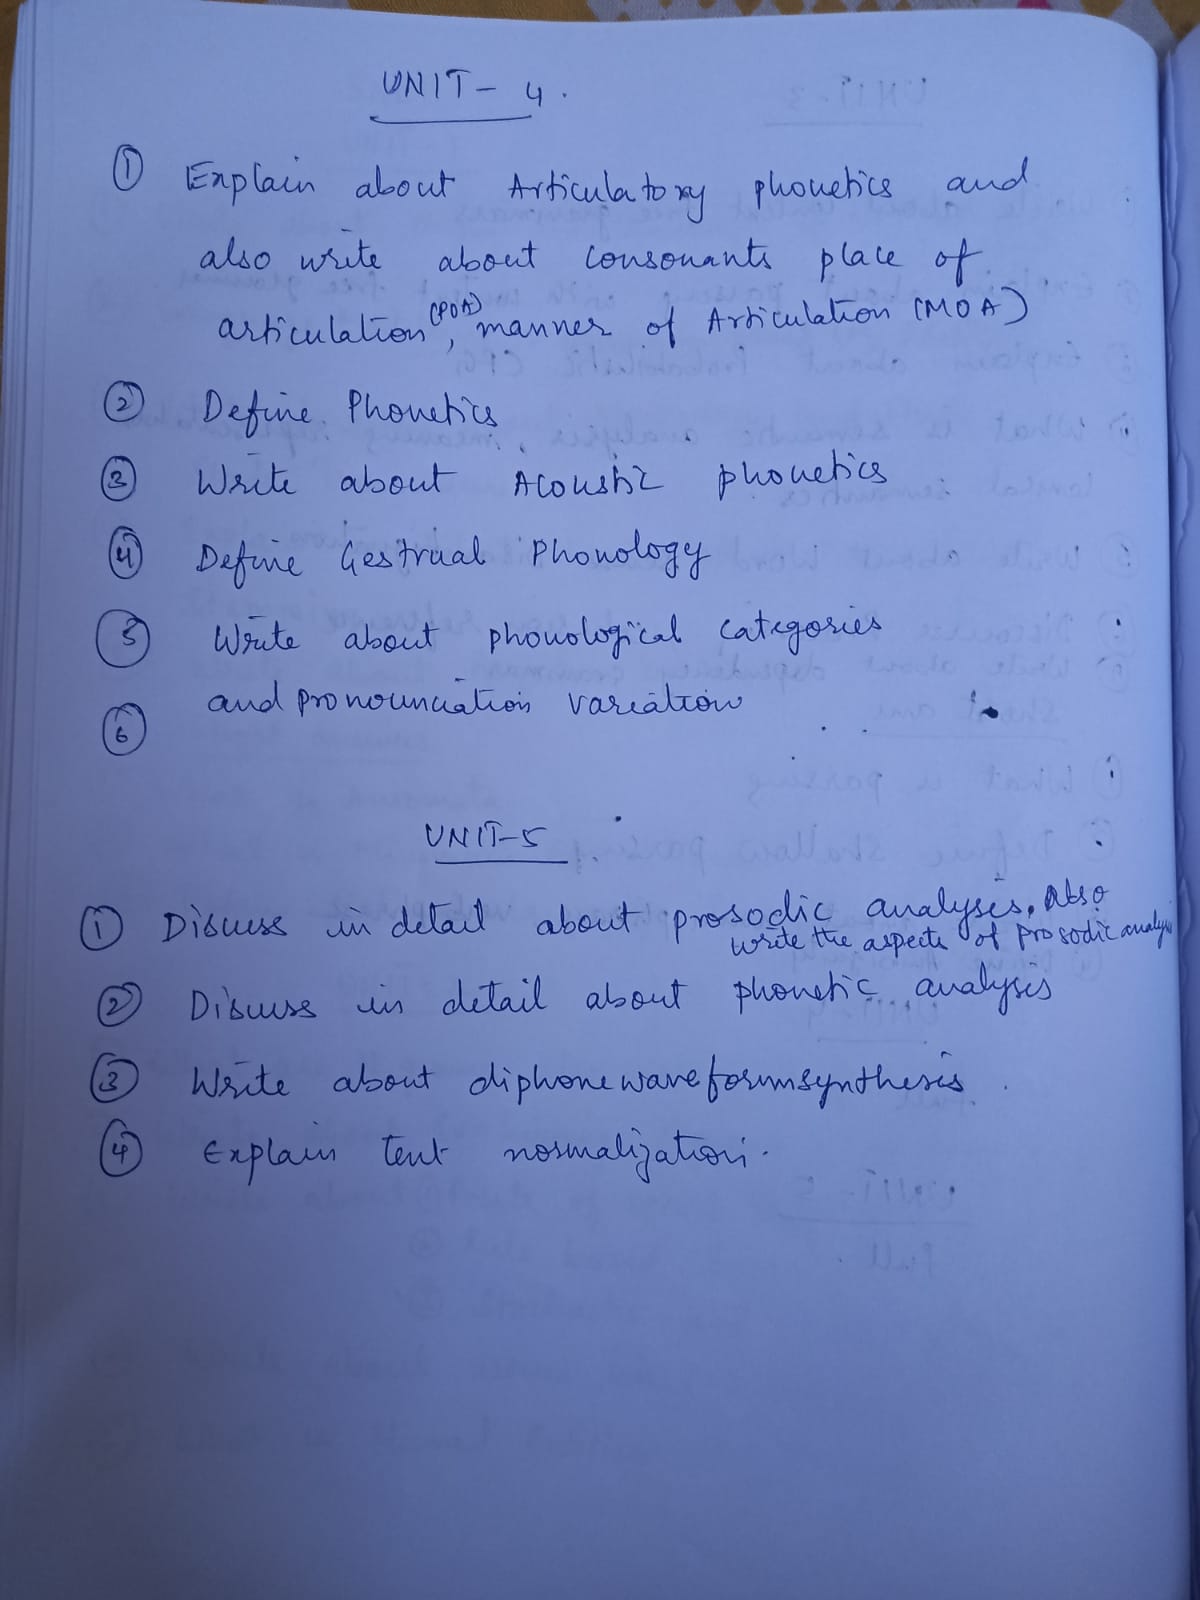 UNIT - 4.
① Explain about Articulatory phonetics and
also write about consonants place of
articulation (POA), manner of Articulation (MOA)
② Define Phonetics
③ Write about Acoustic phonetics
④ Define Gestraal Phonology
⑤ Write about phonological categories
and pronounciation variation
⑥
UNIT-5
① Discuss in detail about prosodic analyses. Also
write the aspects of prosodic analysis
② Discuss in detail about phonetic analysis
③ Write about diphone waveformsynthesis
④ Explain text normalization.